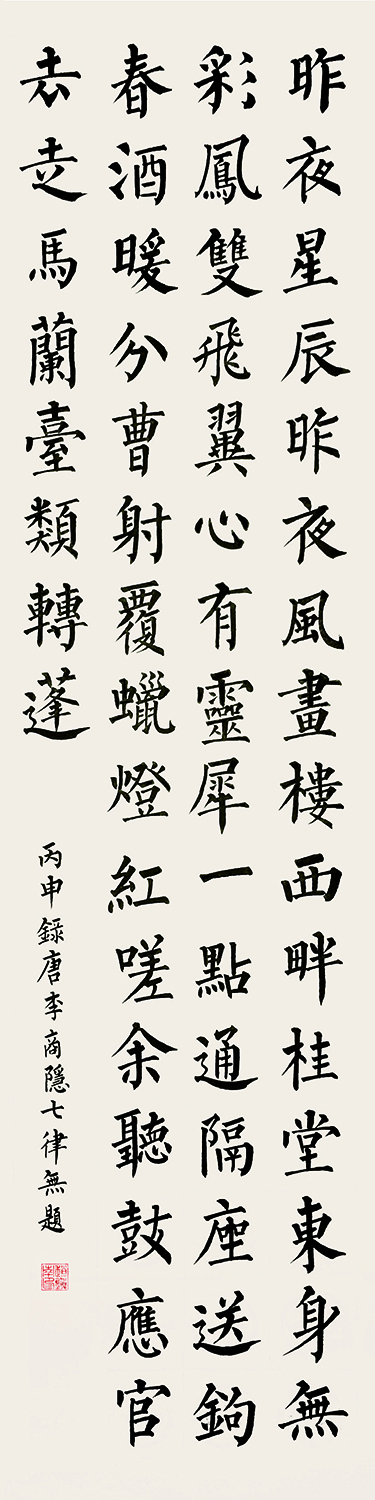 昨夜星辰昨夜風畫樓西畔桂堂東身無
彩鳳雙飛翼心有靈犀一點通隔座送鉤
春酒暖分曹射覆蠟燈紅嗟余聽鼓應官
去走馬蘭臺類轉蓬
丙申錄唐李商隱七律無題